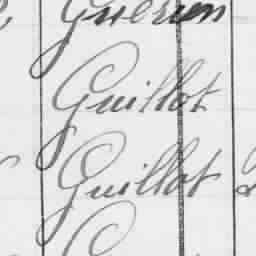 Guerin
Guillot
Guillot